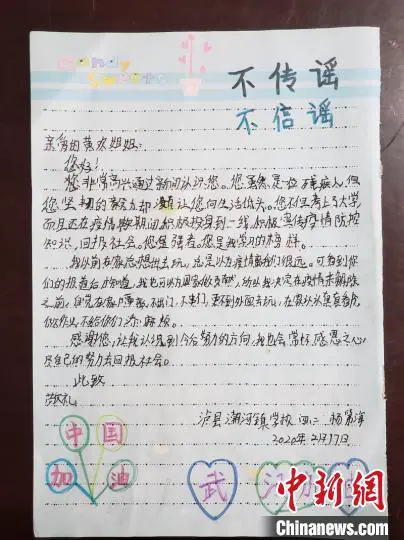 Candy
不传谣
不信谣
亲爱的黄 姐姐:
您好!
您非常高兴通过新闻认识您。您虽然是一位残疾人,但
您坚韧的毅力却 让您向生活低头。您不但考上了大学,
而且还在疫情期间积极投身到一线,积极宣传疫情防控
知识,回报社会。您是强者。您是我学习的榜样。
我以前在家总想出去玩,总是以为疫情离我们很远。可看到你
们的报道后才知道,我也可以为国家做贡献,所以我决定在疫情未解除
之前,自觉在家 ,不出门,不串门,更不到外面去玩,在家认认真真看书,
做作业,不给你们添麻烦。
感谢您,让我认识到今后努力的方向,我也会常怀感恩之心,
尽自己的努力去回报社会。
此致
敬礼
泸县潮河镇学校 四二 杨
2020年2月17日
中国
加油
武汉加油
中新网
CHINANEWS.COM